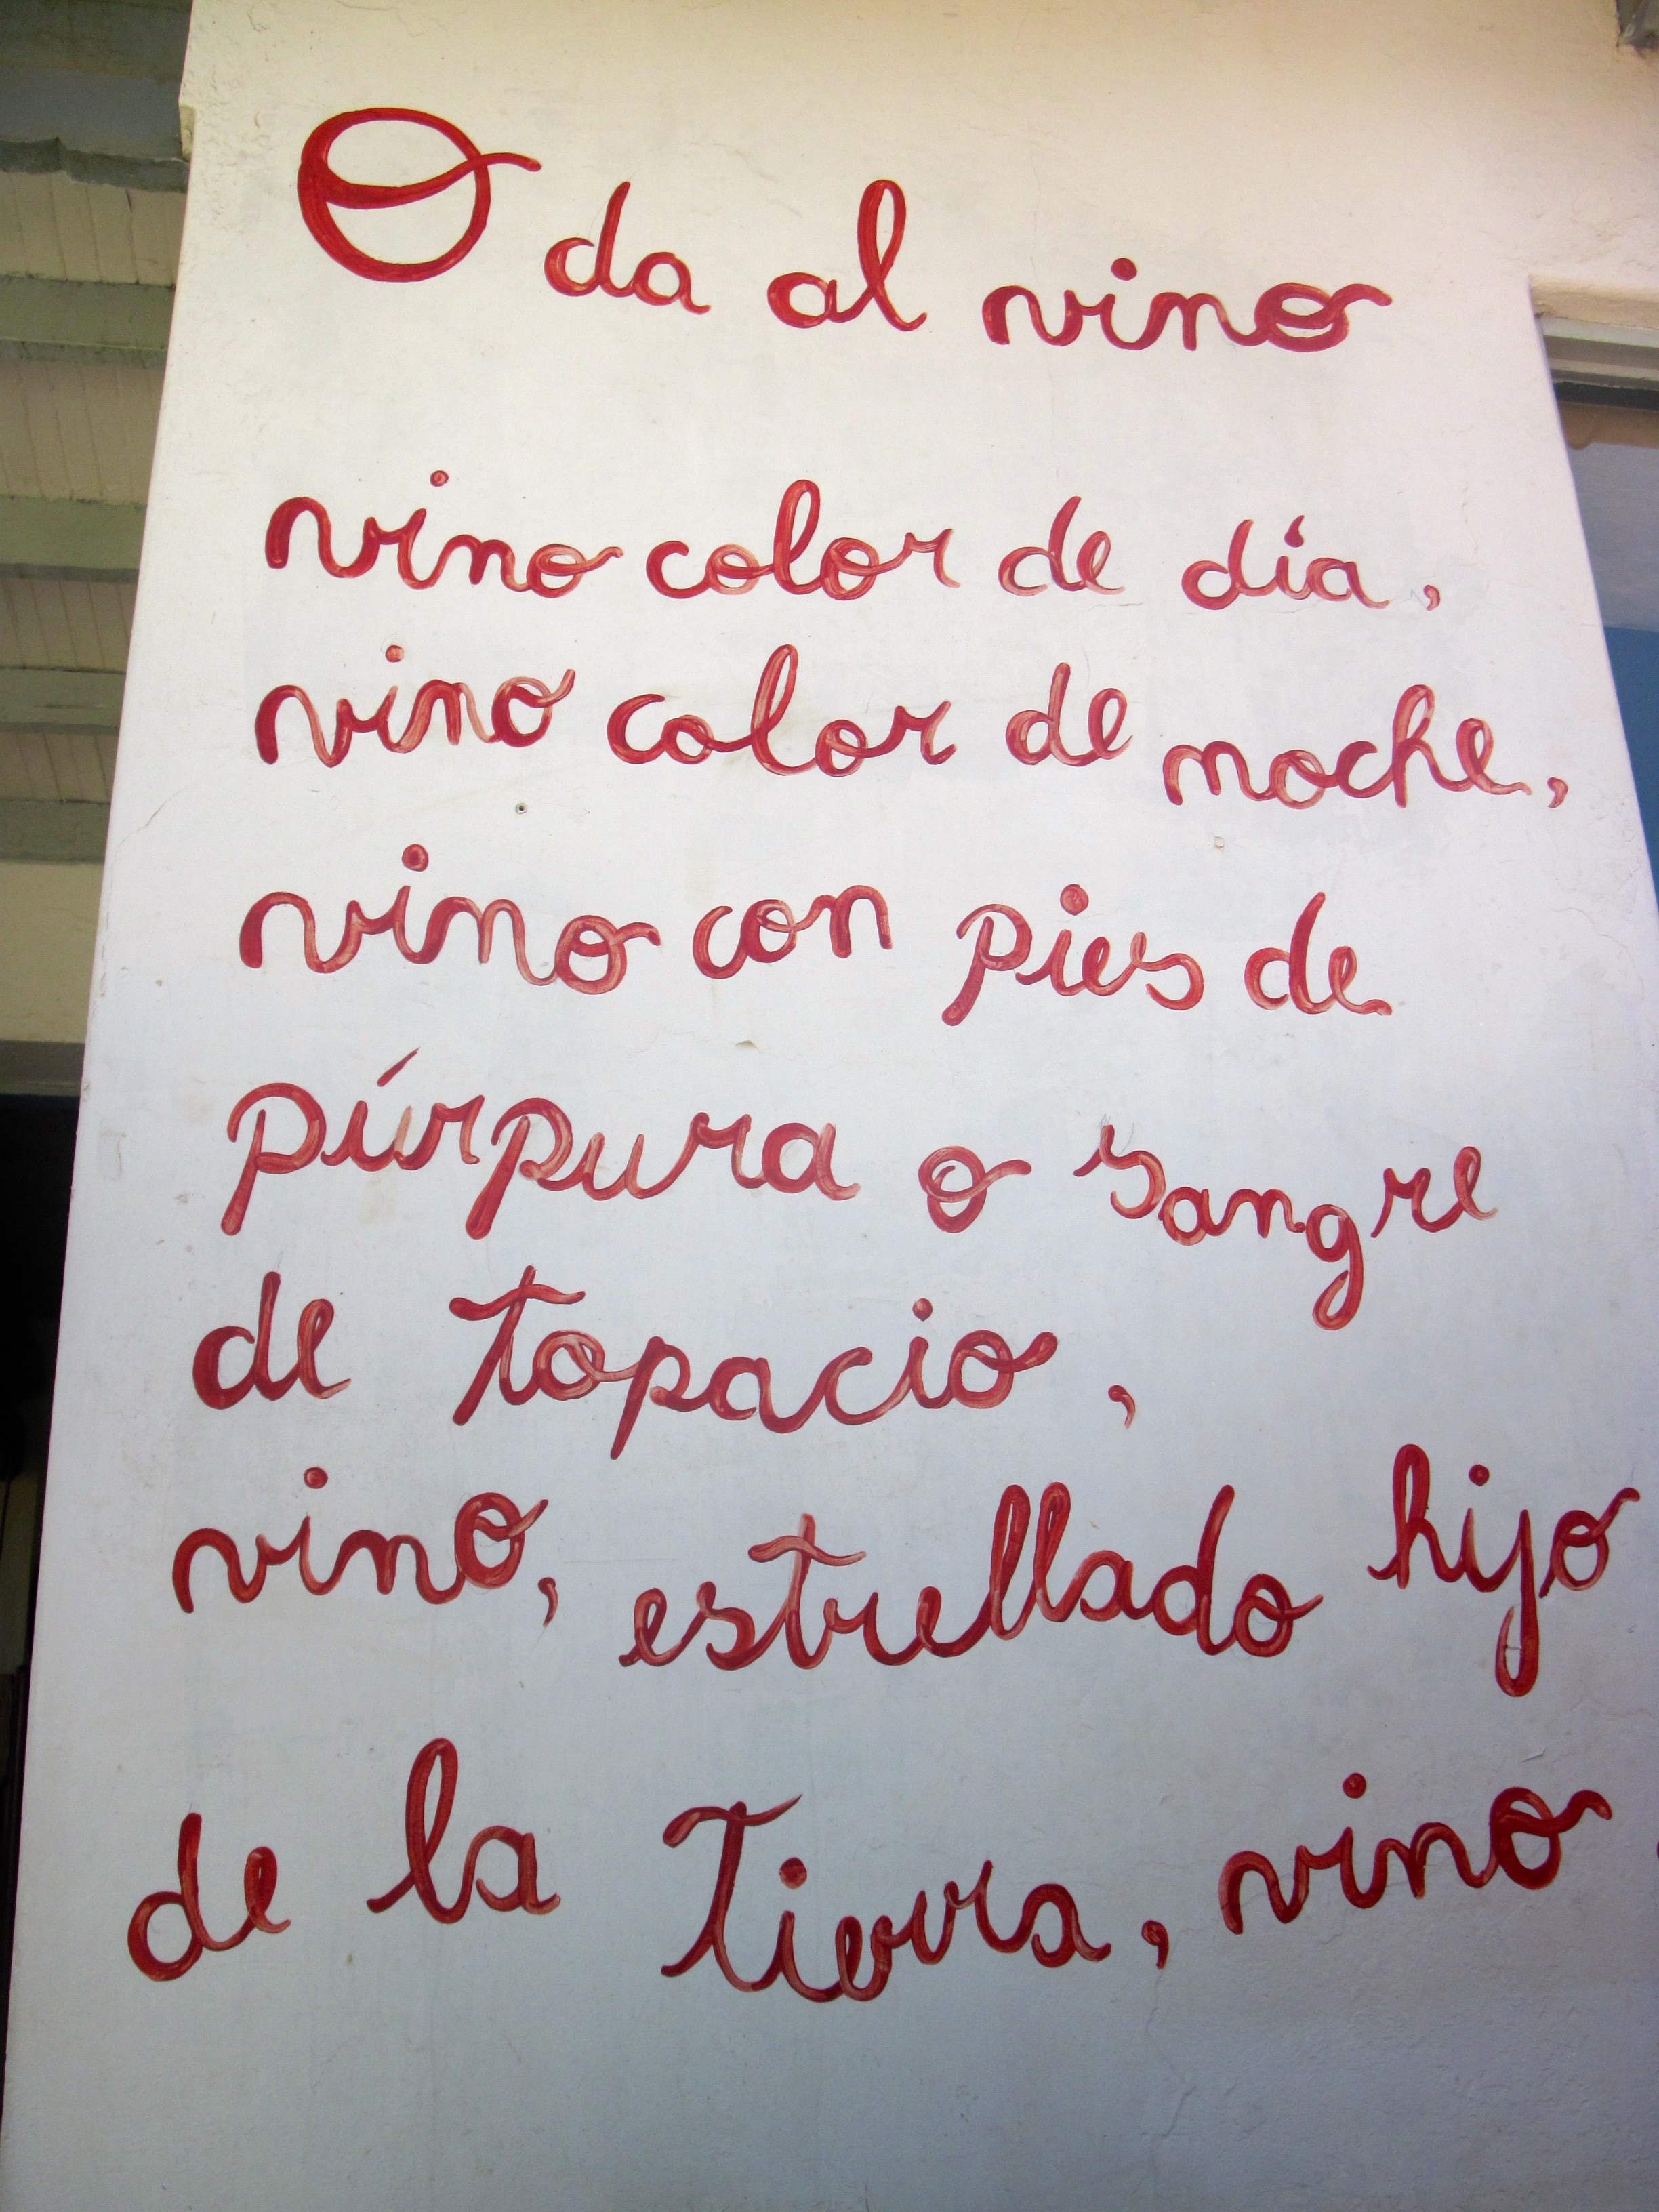 Oda al vino
vino color de día,
vino color de noche,
vino con pies de
púrpura o sangre
de topacio,
vino, estrellado hijo
de la Tierra, vino